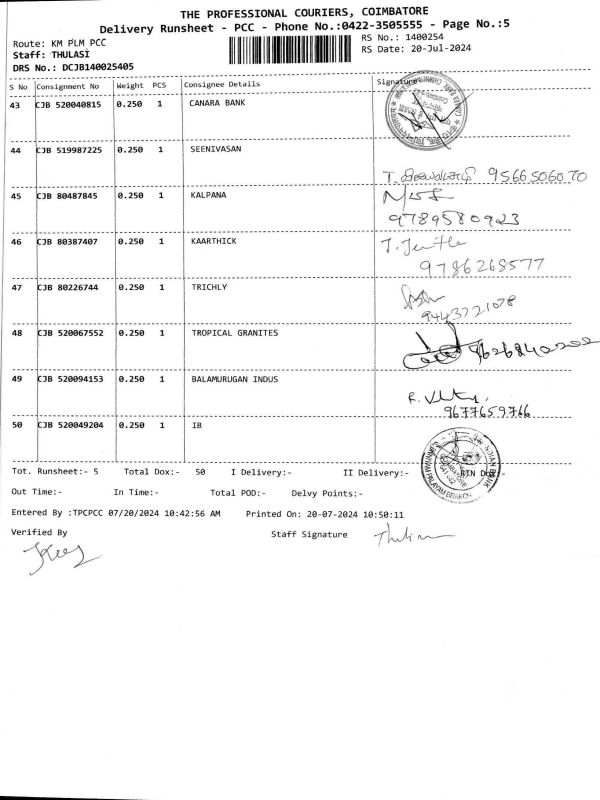 THE PROFESSIONAL COURIERS, COIMBATORE
Delivery Runsheet - PCC - Phone No.:0422-3505555 - Page No.:5
Route: KM PLM PCC
RS No.: 1400254
Staff: THULASI
RS Date: 20-Jul-2024
DRS No.: DCJB140025405
S No Consignment No Weight PCS Consignee Details Signature
43 CJB 520040815 0.250 1 CANARA BANK
44 CJB 519987225 0.250 1 SEENIVASAN
9566506070
45 CJB 80487845 0.250 1 KALPANA
9789580923
46 CJB 80387407 0.250 1 KAARTHICK
9786268577
47 CJB 80226744 0.250 1 TRICHLY
9443721078
48 CJB 520067552 0.250 1 TROPICAL GRANITES
9626840202
49 CJB 520094153 0.250 1 BALAMURUGAN INDUS
9677659766
50 CJB 520049204 0.250 1 IB
Tot. Runsheet:- 5 Total Dox:- 50 I Delivery:- II Delivery:- RTN Dox:-
Out Time:- In Time:- Total POD:- Delvy Points:-
Entered By :TPCPCC 07/20/2024 10:42:56 AM Printed On: 20-07-2024 10:50:11
Verified By Staff Signature